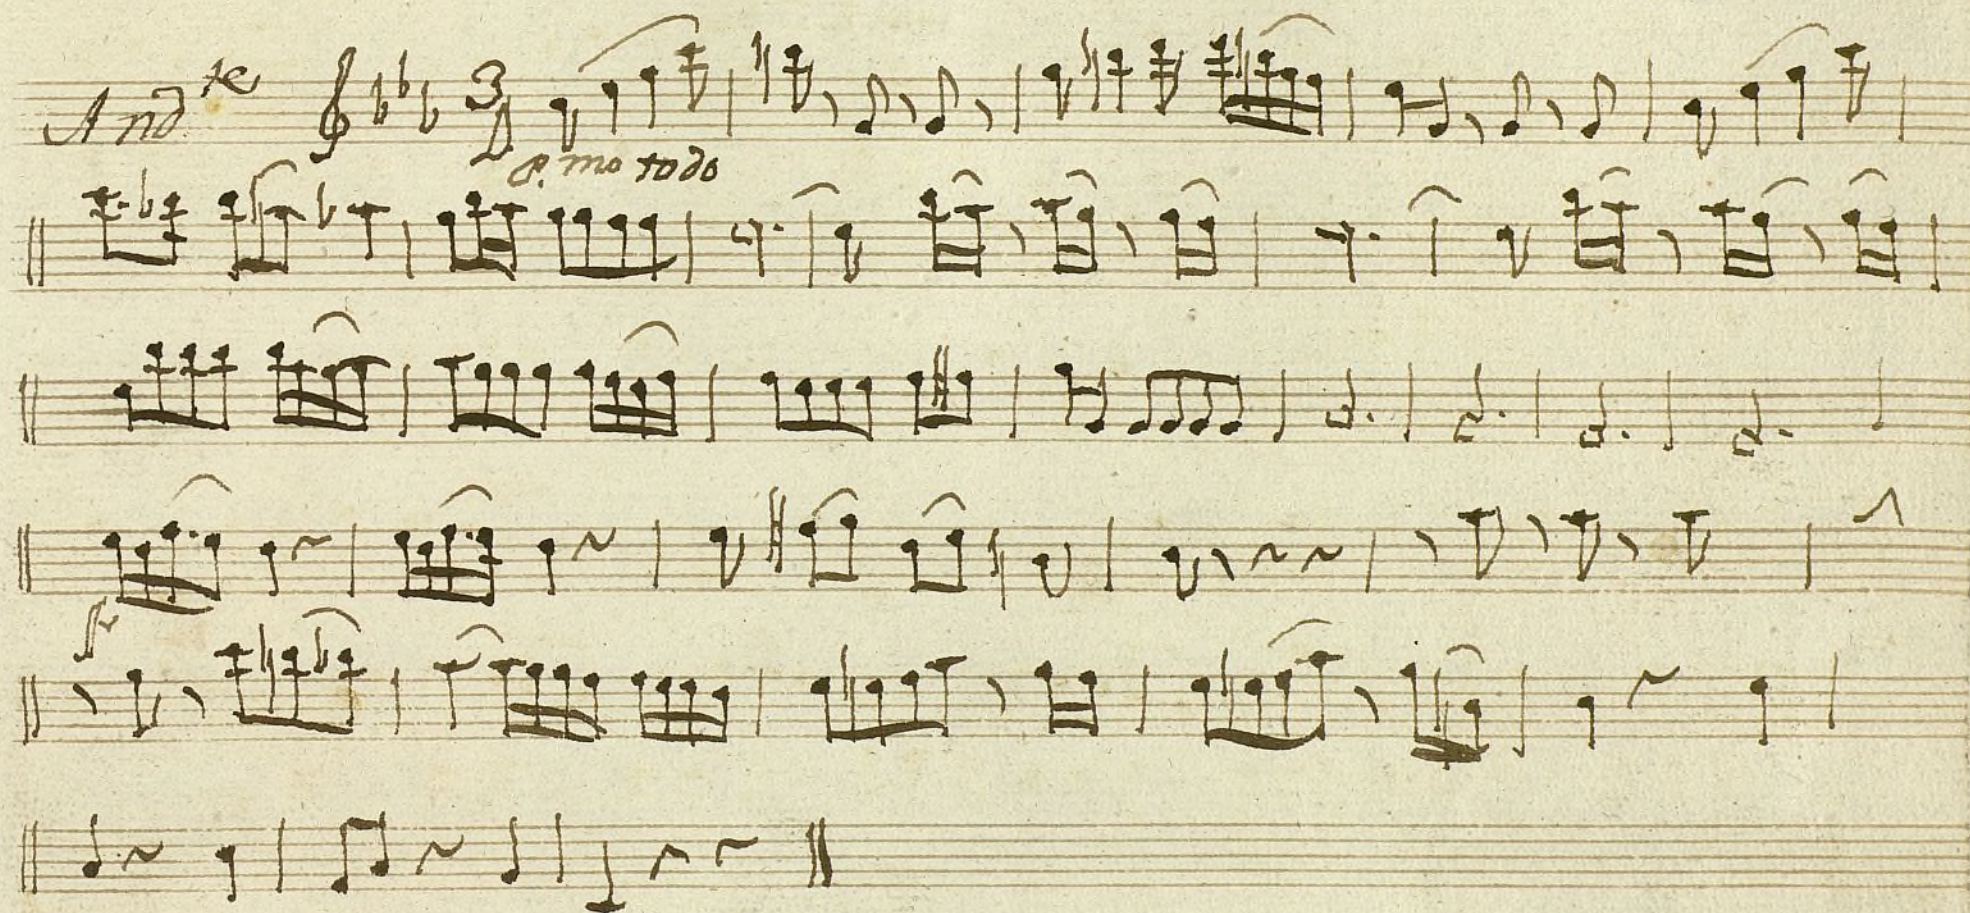 And.te
P.mo todo